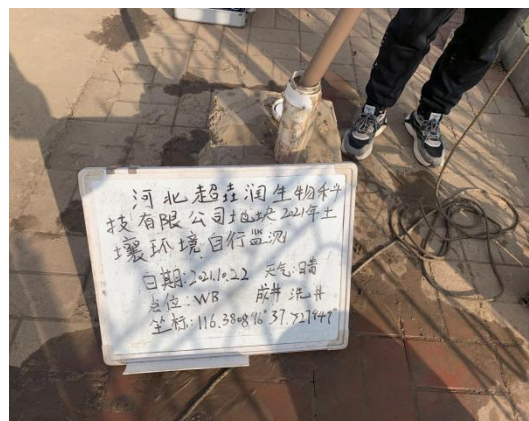 河北超垚润生物科
技有限公司地块2021年土
壤环境自行监测
日期:2021.10.22 天气:晴
点位:WB 成井洗井
坐标:116.380896° 37.727947°